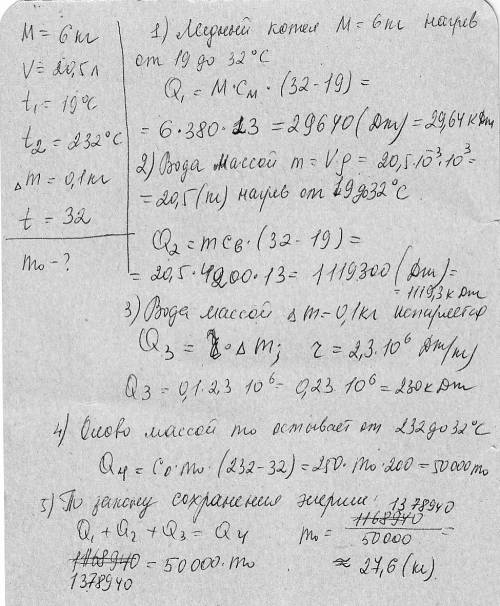 M = 6 кг
V = 20,5 л
t₁ = 19°C
t₂ = 232°C
Δm = 0,1 кг
t = 32
m₀ - ?
1) Медный котел M = 6 кг нагрев
от 19 до 32°C
Q₁ = M·Cм·(32-19) =
= 6·380·13 = 29640 (Дж) = 29,64 кДж
2) Вода массой m = Vρ = 20,5·10⁻³·10³ =
= 20,5 (кг) нагрев от 19 до 32°C
Q₂ = mCв·(32-19) =
= 20,5·4200·13 = 1119300 (Дж) =
= 1119,3 кДж
3) Вода массой Δm = 0,1 кг испаряется
Q₃ = r·Δm; r = 2,3·10⁶ Дж/кг
Q₃ = 0,1·2,3 10⁶ = 0,23·10⁶ = 230 кДж
4) Олово массой m₀ остывает от 232 до 32°C
Q₄ = C₀·m₀·(232-32) = 250·m₀·200 = 50000 m₀
5) По закону сохранения энергии:
Q₁ + Q₂ + Q₃ = Q₄
1168940 = 50000·m₀
1378940
1378940
m₀ = 1168940 / 50000 =
≈ 27,6 (кг)